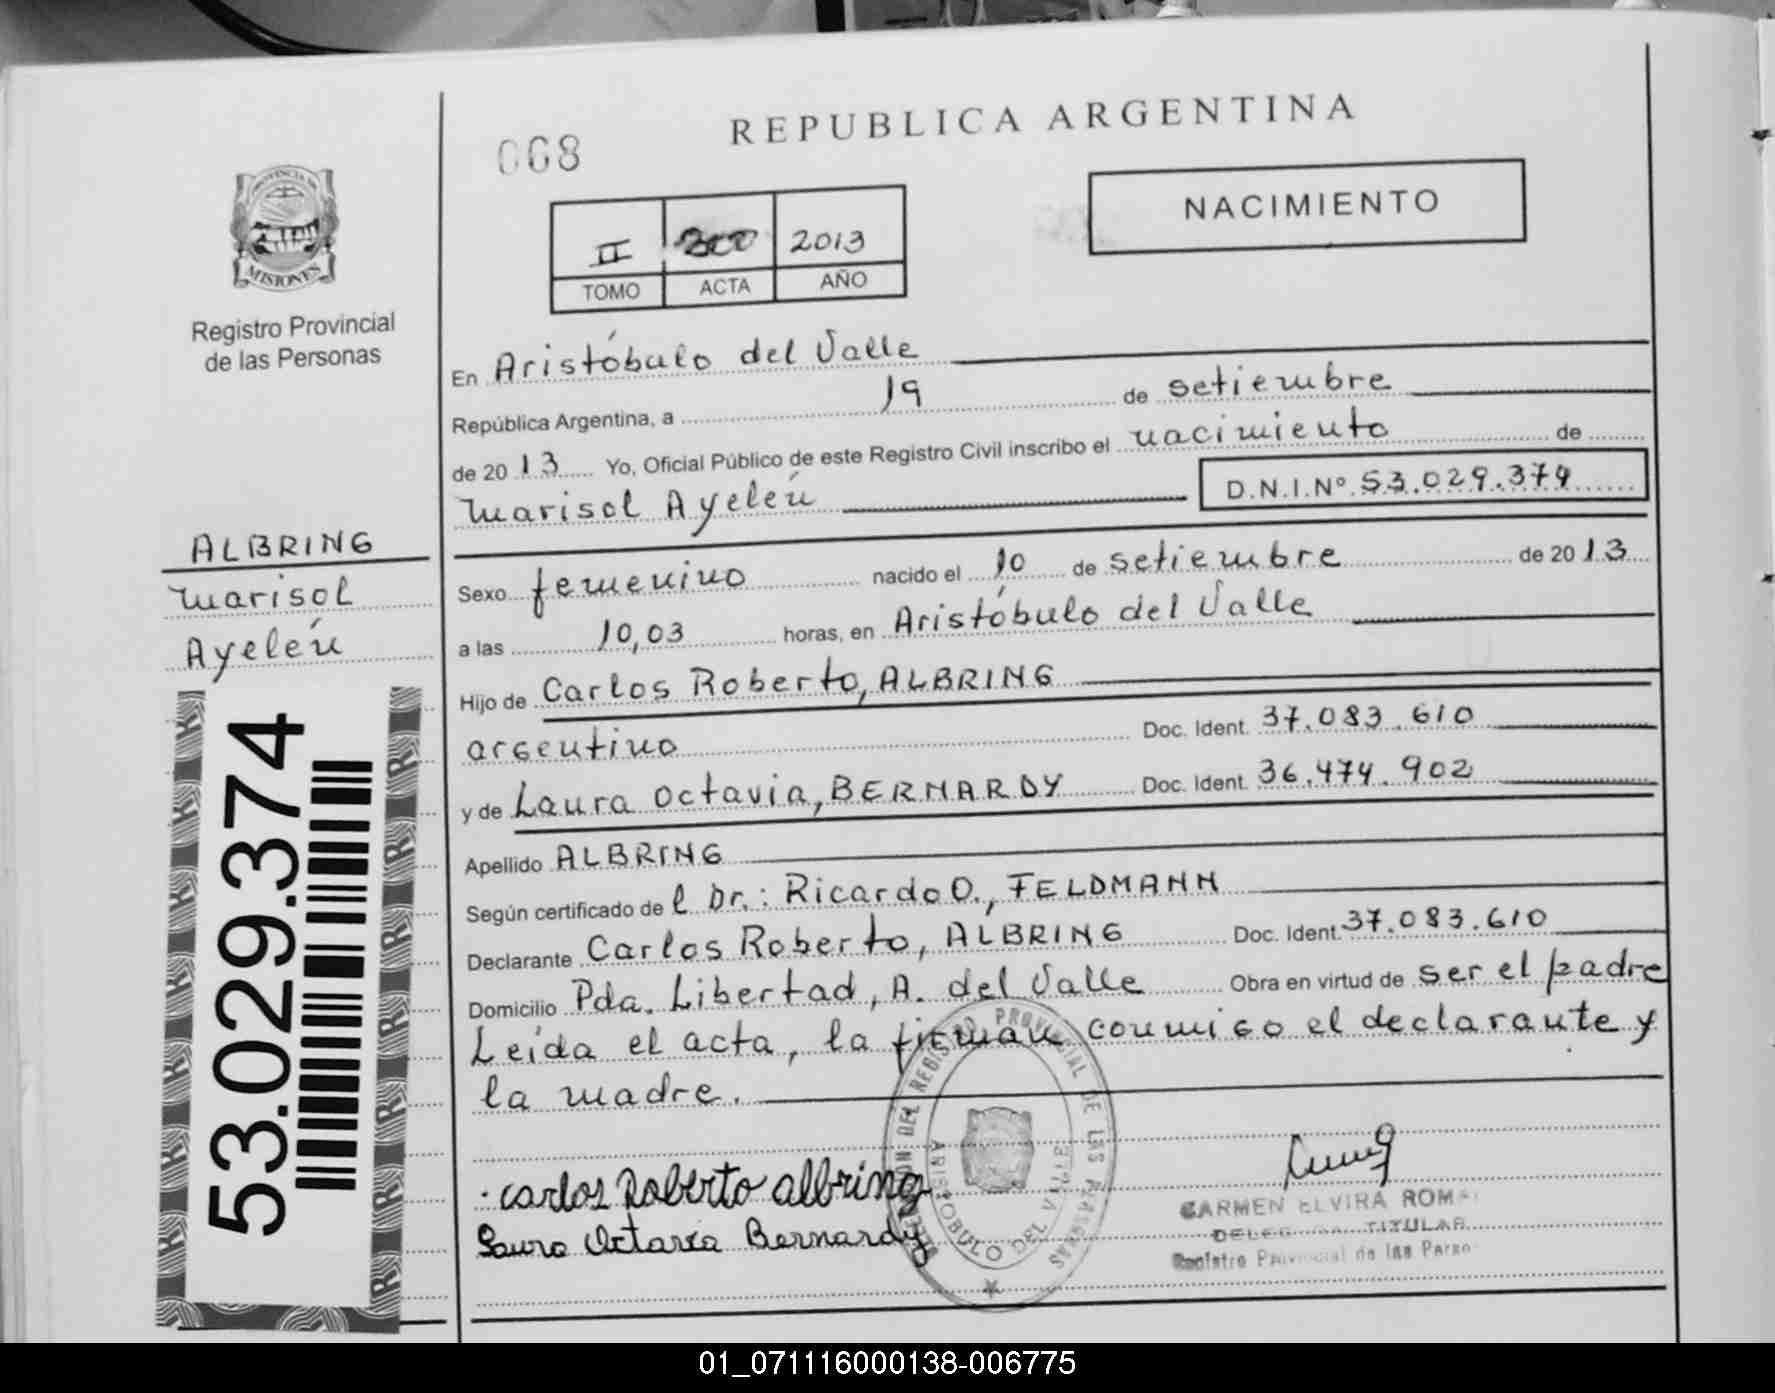 REPUBLICA ARGENTINA
068
NACIMIENTO
II 300 2013
TOMO ACTA AÑO
PROVINCIA DE
MISIONES
Registro Provincial
de las Personas
En Aristóbulo del Valle
República Argentina, a 19 de setiembre
de 2013 Yo, Oficial Público de este Registro Civil inscribo el nacimiento de
Marisol Ayelén D.N.I.Nº 53.029.374
ALBRING
Marisol
Ayelén
53.029.374
Sexo femenino nacido el 10 de setiembre de 2013
a las 10,03 horas, en Aristóbulo del Valle
Hijo de Carlos Roberto, ALBRING
argentino Doc. Ident. 37.083.610
y de Laura Octavia, BERNARDY Doc. Ident. 36.474.902
Apellido ALBRING
Según certificado de l Dr.: Ricardo O., FELDMANN
Declarante Carlos Roberto, ALBRING Doc. Ident. 37.083.610
Domicilio Pda. Libertad, A. del Valle Obra en virtud de ser el padre
Leída el acta, la firman conmigo el declarante y
la madre.
DEL REGISTRO PROVINCIAL DE LAS PERSONAS
ARISTOBULO DEL VALLE
Carlos Roberto albring
Laura Octavia Bernardy
CARMEN ELVIRA
TITULAR
Registro Provincial de las
01_071116000138-006775